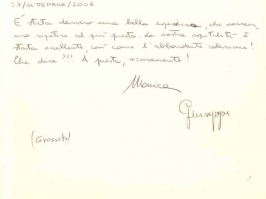 27/SETTEMBRE/2006
È stata davvero una bella esperienza, che vorremmo
ripetere al più presto. La vostra ospitalità è
stata eccellente, così come l'abbondante colazione!
Che dire?!! A presto, nuovamente!
Monica
Giuseppe
(Grosseto)